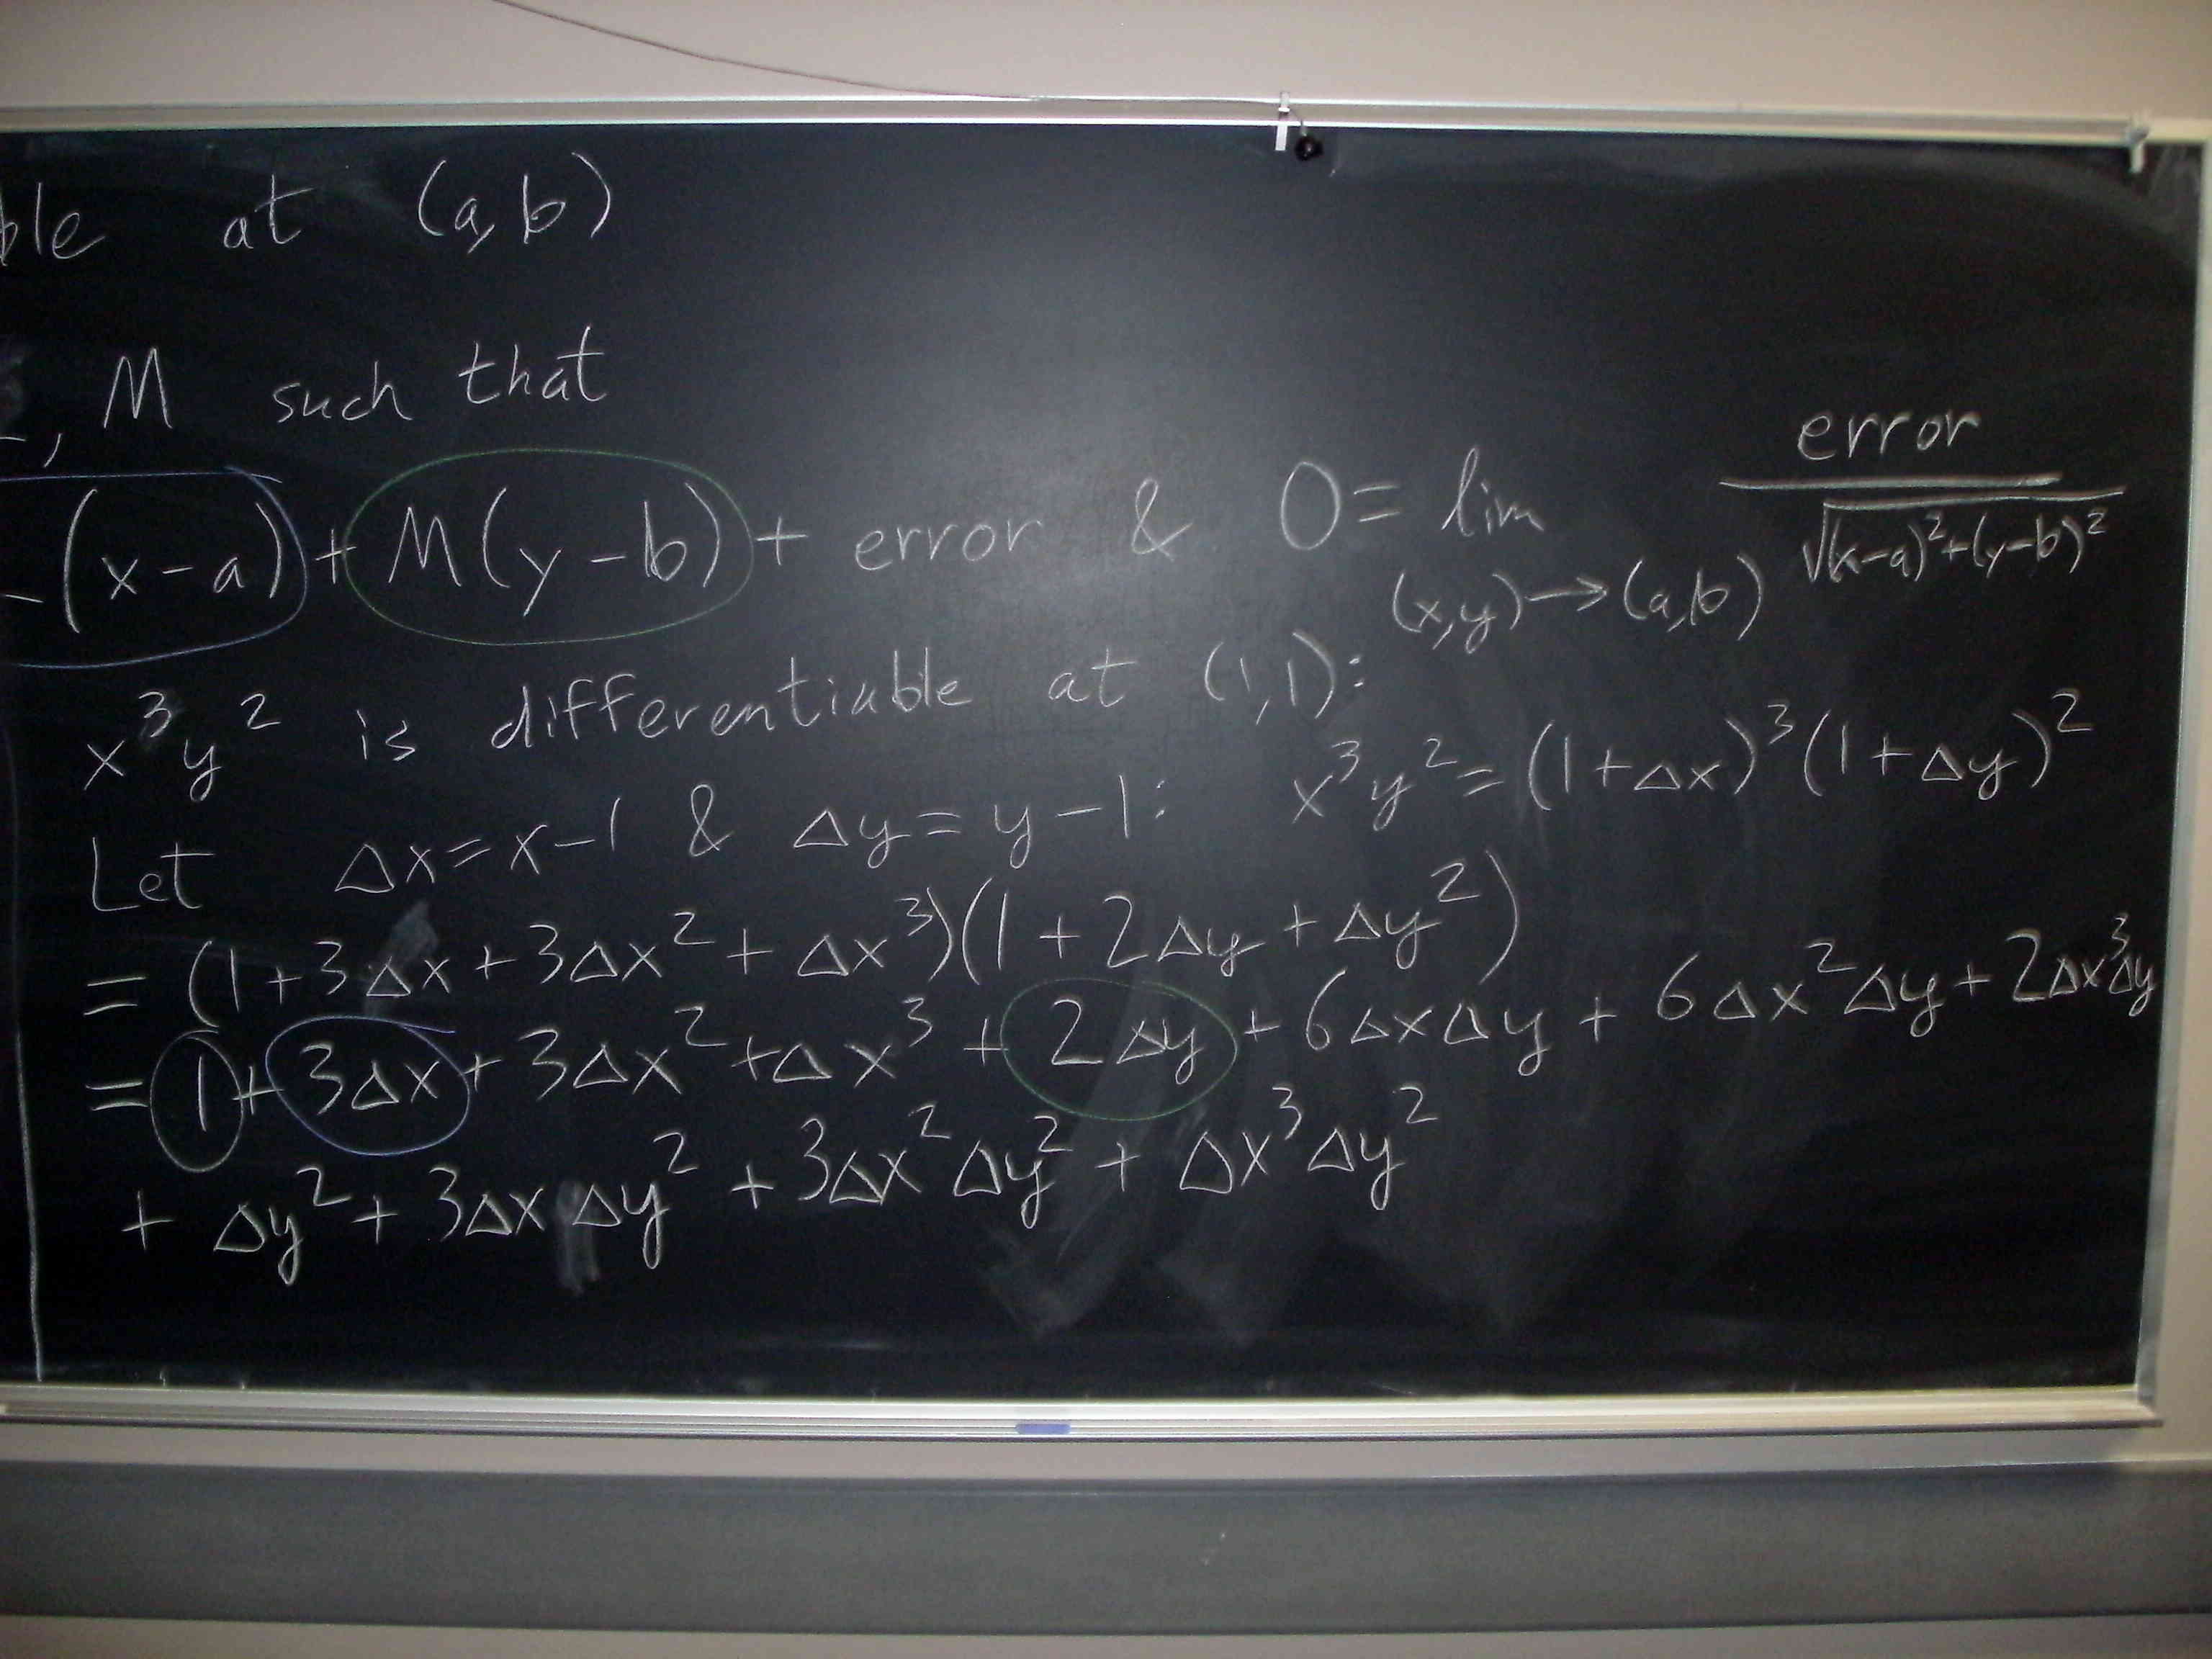 ble at (a,b)
, M such that
(x-a) + M(y-b) + error & 0 = lim (x,y)→(a,b) error / √(x-a)²+(y-b)²
x³y² is differentiable at (1,1):
Let Δx = x-1 & Δy = y-1: x³y² = (1+Δx)³(1+Δy)²
= (1+3Δx+3Δx²+Δx³)(1+2Δy+Δy²)
= 1+3Δx+3Δx²+Δx³+2Δy+6ΔxΔy+6Δx²Δy+2Δx³Δy
+ Δy²+3ΔxΔy²+3Δx²Δy²+Δx³Δy²